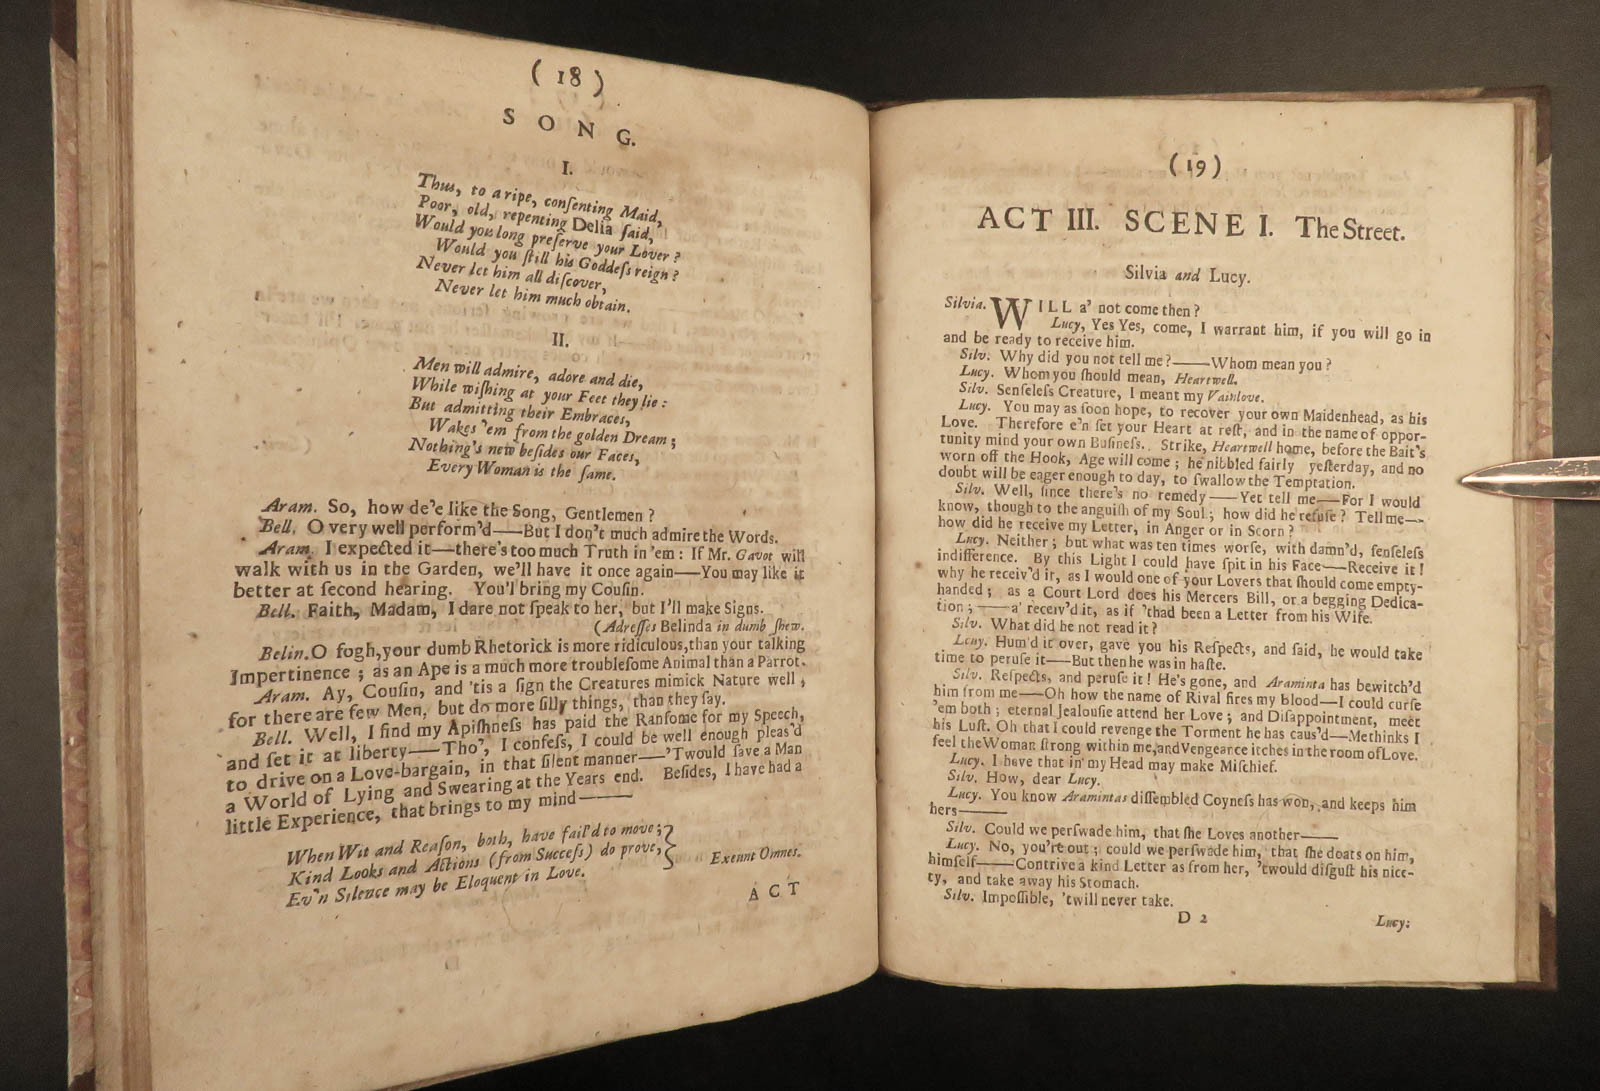 ( 18 )
S O N G.
I.
Thus, to a ripe, conſenting Maid,
Poor, old, repenting Delia ſaid,
Would you long preſerve your Lover ?
Would you ſtill his Goddeſs reign ?
Never let him all diſcover,
Never let him much obtain.
II.
Men will admire, adore and die,
While wiſhing at your Feet they lie :
But admitting their Embraces,
Wakes 'em from the golden Dream ;
Nothing's new beſides our Faces,
Every Woman is the ſame.
Aram. So, how de'e like the Song, Gentlemen ?
Bell. O very well perform'd—But I don't much admire the Words.
Aram. I expected it—there's too much Truth in 'em : If Mr. Gavot will
walk with us in the Garden, we'll have it once again—You may like it
better at ſecond hearing. You'l bring my Couſin.
Bell. Faith, Madam, I dare not ſpeak to her, but I'll make Signs.
(Adreſſes Belinda in dumb ſhew.
Belin. O fogh, your dumb Rhetorick is more ridiculous, than your talking
Impertinence ; as an Ape is a much more troubleſome Animal than a Parrot.
Aram. Ay, Couſin, and 'tis a ſign the Creatures mimick Nature well ;
for there are few Men, but do more ſilly things, than they ſay.
Bell. Well, I find my Apiſhneſs has paid the Ranſome for my Speech,
and ſet it at liberty—Tho', I confeſs, I could be well enough pleas'd
to drive on a Love-bargain, in that ſilent manner—'Twould ſave a Man
a World of Lying and Swearing at the Years end. Beſides, I have had a
little Experience, that brings to my mind——
When Wit and Reaſon, both, have fail'd to move;
Kind Looks and Actions (from Succeſs) do prove,
Ev'n Silence may be Eloquent in Love.
Exeunt Omnes.
A C T
( 19 )
ACT III. SCENE I. The Street.
Silvia and Lucy.
Silvia. WILL a' not come then ?
Lucy, Yes Yes, come, I warrant him, if you will go in
and be ready to receive him.
Silv. Why did you not tell me ?——Whom mean you ?
Lucy. Whom you ſhould mean, Heartwell.
Silv. Senſeleſs Creature, I meant my Vainlove.
Lucy. You may as ſoon hope, to recover your own Maidenhead, as his
Love. Therefore e'n ſet your Heart at reſt, and in the name of oppor-
tunity mind your own Buſineſs. Strike, Heartwell home, before the Bait's
worn off the Hook, Age will come ; he nibbled fairly yeſterday, and no
doubt will be eager enough to day, to ſwallow the Temptation.
Silv. Well, ſince there's no remedy——Yet tell me—For I would
know, though to the anguiſh of my Soul ; how did he refuſe ? Tell me—
how did he receive my Letter, in Anger or in Scorn ?
Lucy. Neither ; but what was ten times worſe, with damn'd, ſenſeleſs
indifference. By this Light I could have ſpit in his Face—Receive it !
why he receiv'd it, as I would one of your Lovers that ſhould come empty-
handed ; as a Court Lord does his Mercers Bill, or a begging Dedica-
tion ;——a' receiv'd it, as if 'thad been a Letter from his Wife.
Silv. What did he not read it ?
Lcuy. Hum'd it over, gave you his Reſpects, and ſaid, he would take
time to peruſe it—But then he was in haſte.
Silv. Reſpects, and peruſe it ! He's gone, and Araminta has bewitch'd
him from me—Oh how the name of Rival fires my blood—I could curſe
'em both ; eternal Jealouſie attend her Love ; and Diſappointment, meet
his Luſt. Oh that I could revenge the Torment he has caus'd—Methinks I
feel the Woman ſtrong within me, and Vengeance itches in the room of Love.
Lucy. I have that in my Head may make Miſchief.
Silv. How, dear Lucy.
Lucy. You know Aramintas diſſembled Coyneſs has won, and keeps him
hers——
Silv. Could we perſwade him, that ſhe Loves another——
Lucy. No, you're out ; could we perſwade him, that ſhe doats on him,
himſelf——Contrive a kind Letter as from her, 'twould diſguſt his nice-
ty, and take away his Stomach.
Silv. Impoſſible, 'twill never take.
D 2
Lucy: